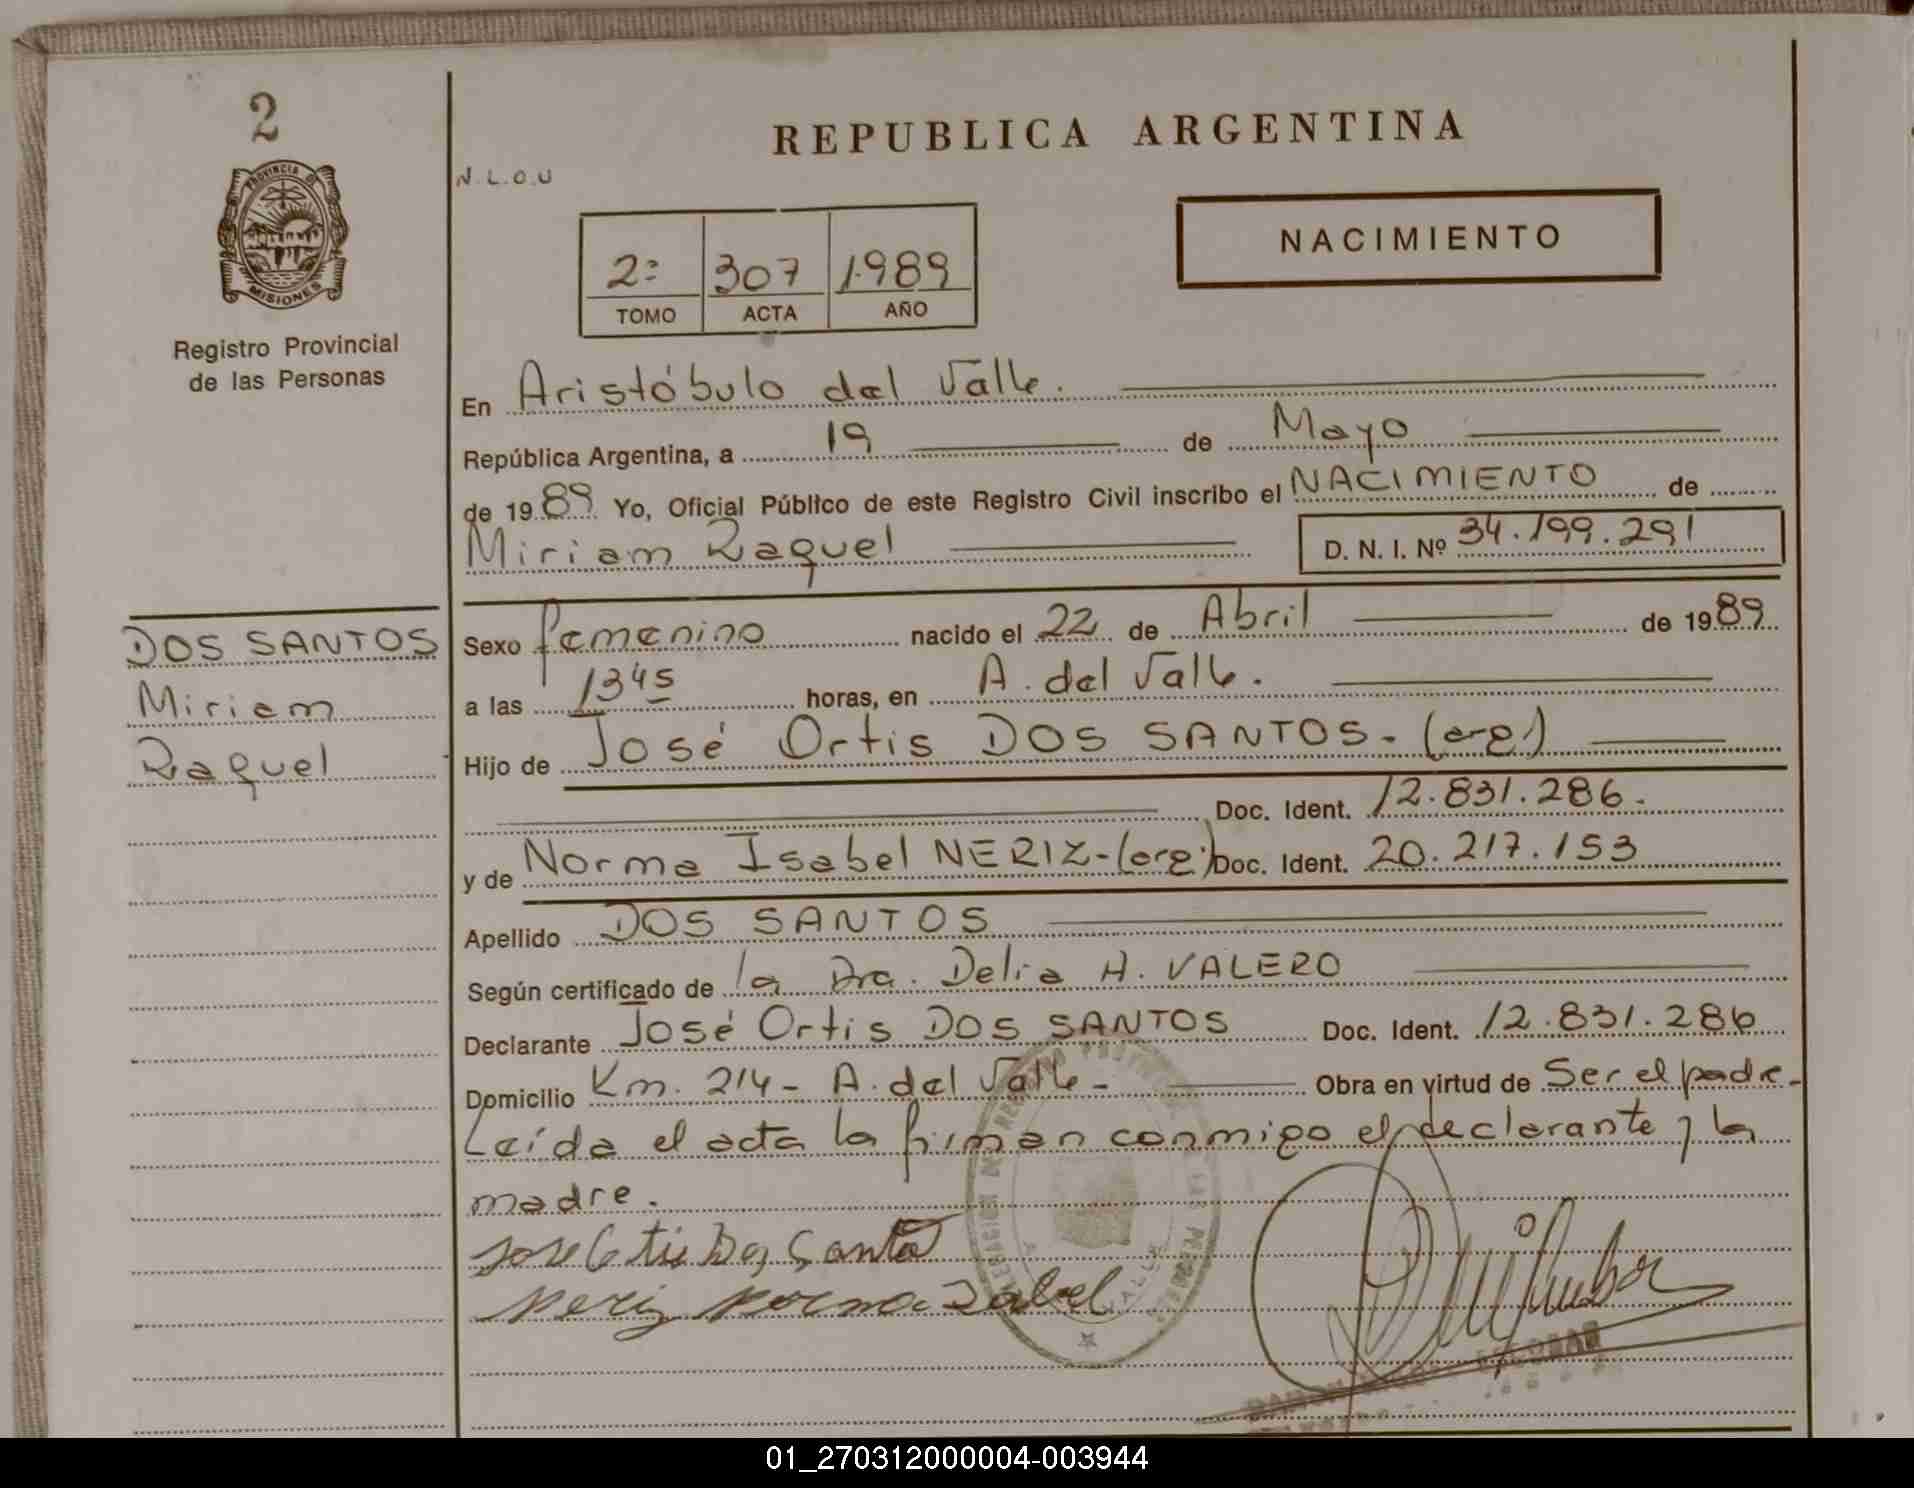 2
PROVINCIA DE
MISIONES
Registro Provincial
de las Personas
DOS SANTOS
Miriam
Raquel
REPUBLICA ARGENTINA
N.L.O.U
NACIMIENTO
2º 307 1.989
TOMO ACTA AÑO
En Aristóbulo del Valle.
República Argentina, a 19 de Mayo
de 1989 Yo, Oficial Público de este Registro Civil inscribo el NACIMIENTO de
Miriam Raquel D. N. I. Nº 34.199.291
Sexo femenino nacido el 22 de Abril de 1989
a las 13 45 horas, en A. del Valle.
Hijo de José Ortis DOS SANTOS - (arg.)
Doc. Ident. 12.831.286.
y de Norma Isabel NERIZ - (arg.) Doc. Ident. 20.217.153
Apellido DOS SANTOS
Según certificado de la Dra. Delia H. VALERO
Declarante José Ortis DOS SANTOS Doc. Ident. 12.831.286
Domicilio Km. 214 - A. del Valle - Obra en virtud de Ser el padre.-
Leída el acta la firman conmigo el declarante y la
madre.
Jose Ortis Dos Santos
Neriz Norma Isabel
ESCOBAR
01_270312000004-003944